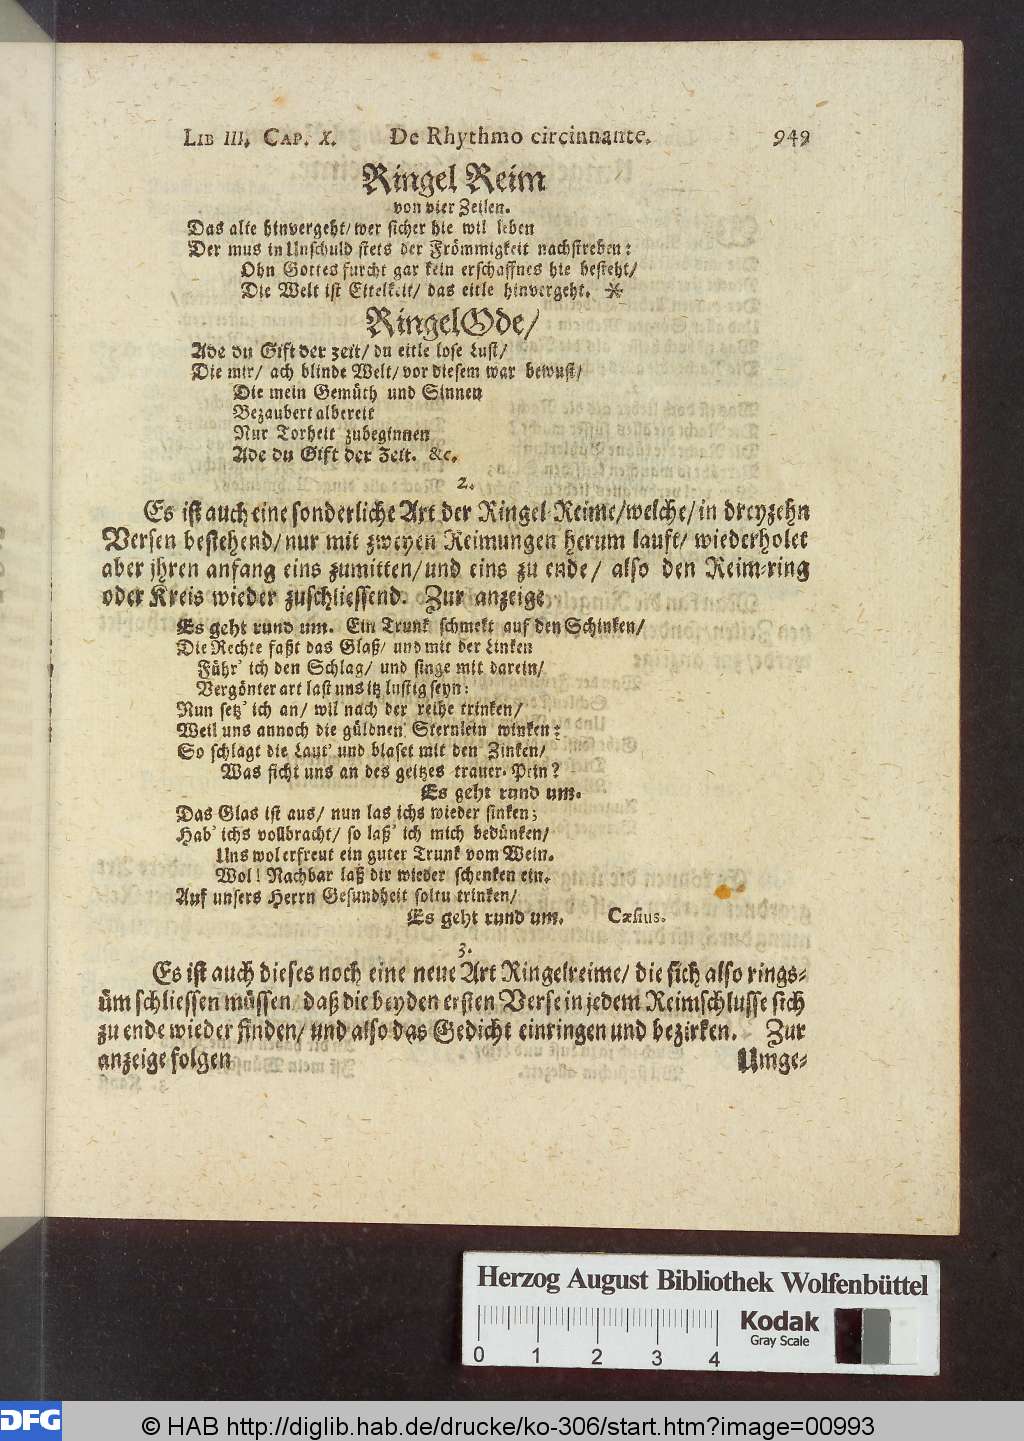 LIB III. CAP. X. De Rhythmo circinnante. 949
Ringel Reim
von vier Zeilen.
Das alte hinvergeht/ wer sicher hie wil leben
Der mus in Unschuld stets der Frömmigkeit nachstreben:
Ohn Gottesfurcht gar kein erschaffnes hie besteht/
Die Welt ist Eitelkeit/ das eitle hinvergeht. *
RingelOde/
Ade du Gift der zeit/ du eitle lose Lust/
Die mir/ ach blinde Welt/ vor diesem war bewust/
Die mein Gemüth und Sinnen
Bezaubert albereit
Nur Torheit zubeginnen
Ade du Gift der Zeit. &c.
2.
Es ist auch eine sonderliche Art der Ringel-Reime/welche/in dreyzehn
Versen bestehend/nur mit zweyen Reimungen herum lauft/ wiederholet
aber jhren anfang eins zumitten/und eins zu ende/ also den Reim-ring
oder Kreis wieder zuschliessend. Zur anzeige
Es geht rund um. Ein Trunk schmekt auf den Schinken/
Die Rechte faßt das Glaß/ und mit der Linken
Führ' ich den Schlag/ und singe mit darein/
Vergönter art last uns itz lustig seyn:
Nun setz' ich an/ wil nach der reihe trinken/
Weil uns annoch die güldnen Sternlein winken:
So schlagt die Laut' und blaset mit den Zinken/
Was ficht uns an des geitzes traur-Pein?
Es geht rund um.
Das Glas ist aus/ nun las ichs wieder sinken;
Hab' ichs vollbracht/ so laß' ich mich bedünken/
Uns wol erfreut ein guter Trunk vom Wein.
Wol! Nachbar laß dir wieder schenken ein.
Auf unsers Herrn Gesundheit soltu trinken/
Es geht rund um. Cæsius.
3.
Es ist auch dieses noch eine neue Art Ringelreime/ die sich also rings-
üm schliessen müssen/ daß die beyden ersten Verse in jedem Reimschlusse sich
zu ende wieder finden/ und also das Gedicht einringen und bezirken. Zur
anzeige folgen Umge-
Herzog August Bibliothek Wolfenbüttel
Kodak
Gray Scale
0 1 2 3 4
DFG © HAB http://diglib.hab.de/drucke/ko-306/start.htm?image=00993